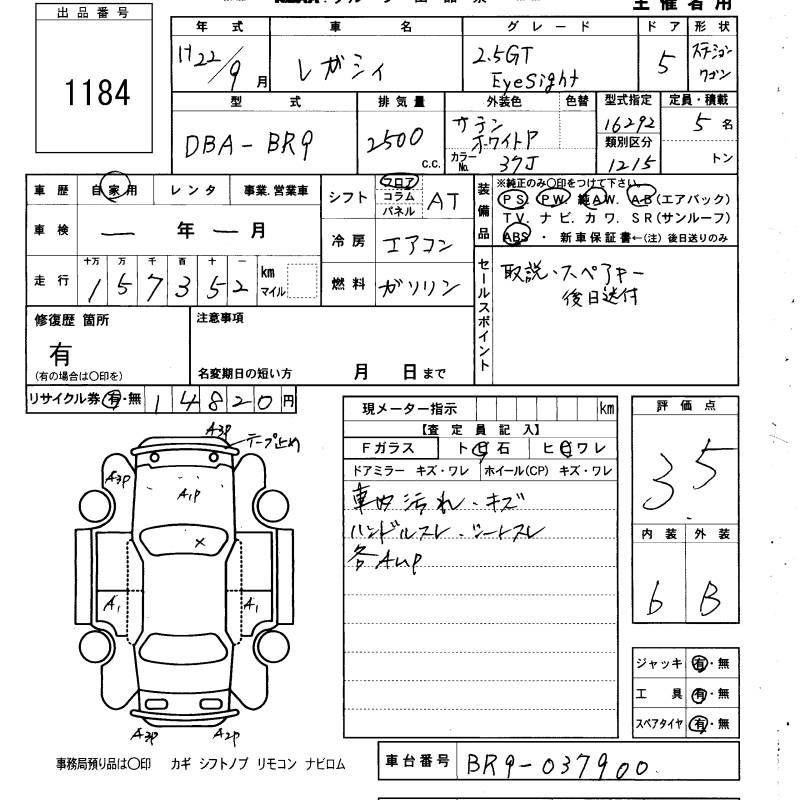 主催者用
出品番号
1184
年式 車名 グレード ドア 形状
H22/9月 レガシィ 2.5GT EyeSight 5 ステーションワゴン
型式 排気量 外装色 色替 型式指定 定員・積載
DBA-BR9 2500 c.c. サテンホワイトP 16292 5名
類別区分
カラーNo. 37J 1215 トン
車歴 自家用 レンタ 事業.営業車
シフト フロア コラム パネル AT
装備品
※純正のみ〇印をつけて下さい。
PS. PW. 純AW. AB(エアバック)
TV. ナビ. カワ. SR(サンルーフ)
ABS ・ 新車保証書←(注) 後日送りのみ
車検 ー 年 ー 月
冷房 エアコン
走行 十万 万 千 百 十 一
157352 km マイル
燃料 ガソリン
セールスポイント
取説・スペアキー
後日送付
修復歴 箇所
有
(有の場合は〇印を)
注意事項
名変期日の短い方 月 日まで
リサイクル券 有・無 14820円
現メーター指示 km
【査定員記入】
Fガラス ト 石 ヒ ワレ
ドアミラー キズ・ワレ ホイール(CP) キズ・ワレ
車内汚れ・キズ
ハンドルスレ・シートスレ
各AUP
評価点
3.5
内装 外装
6 B
A3P
テープ止め
A3P
A1P
X
A1 A1
A3P A2P
ジャッキ 有・無
工具 有・無
スペアタイヤ 有・無
事務局預り品は〇印 カギ シフトノブ リモコン ナビロム
車台番号 BR9-037900